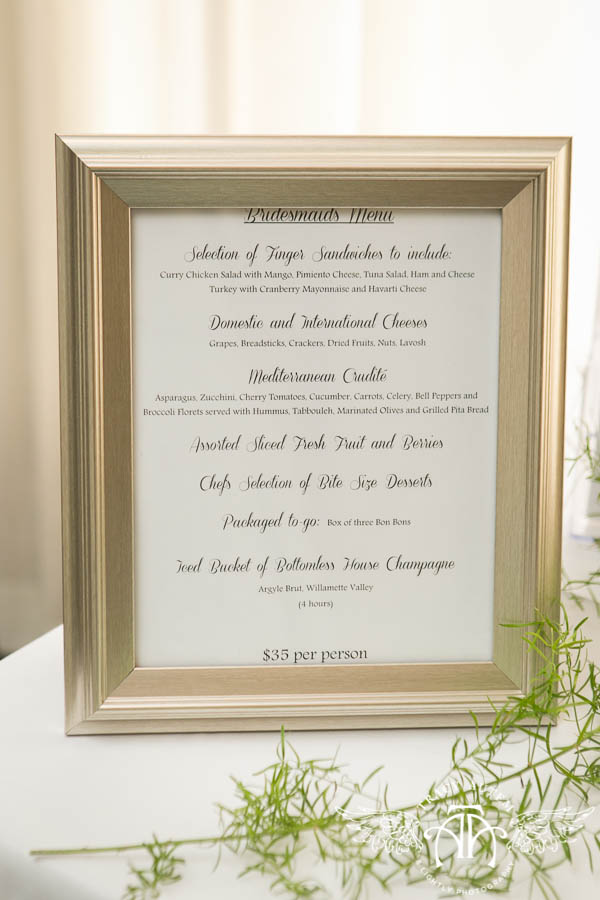 Bridesmaids Menu
Selection of Finger Sandwiches to include:
Curry Chicken Salad with Mango, Pimiento Cheese, Tuna Salad, Ham and Cheese
Turkey with Cranberry Mayonnaise and Havarti Cheese
Domestic and International Cheeses
Grapes, Breadsticks, Crackers, Dried Fruits, Nuts, Lavosh
Mediterranean Crudité
Asparagus, Zucchini, Cherry Tomatoes, Cucumber, Carrots, Celery, Bell Peppers and
Broccoli Florets served with Hummus, Tabbouleh, Marinated Olives and Grilled Pita Bread
Assorted Sliced Fresh Fruit and Berries
Chefs Selection of Bite Size Desserts
Packaged to-go: Box of three Bon Bons
Iced Bucket of Bottomless House Champagne
Argyle Brut, Willamette Valley
(4 hours)
$35 per person
PHOTOGRAPHY